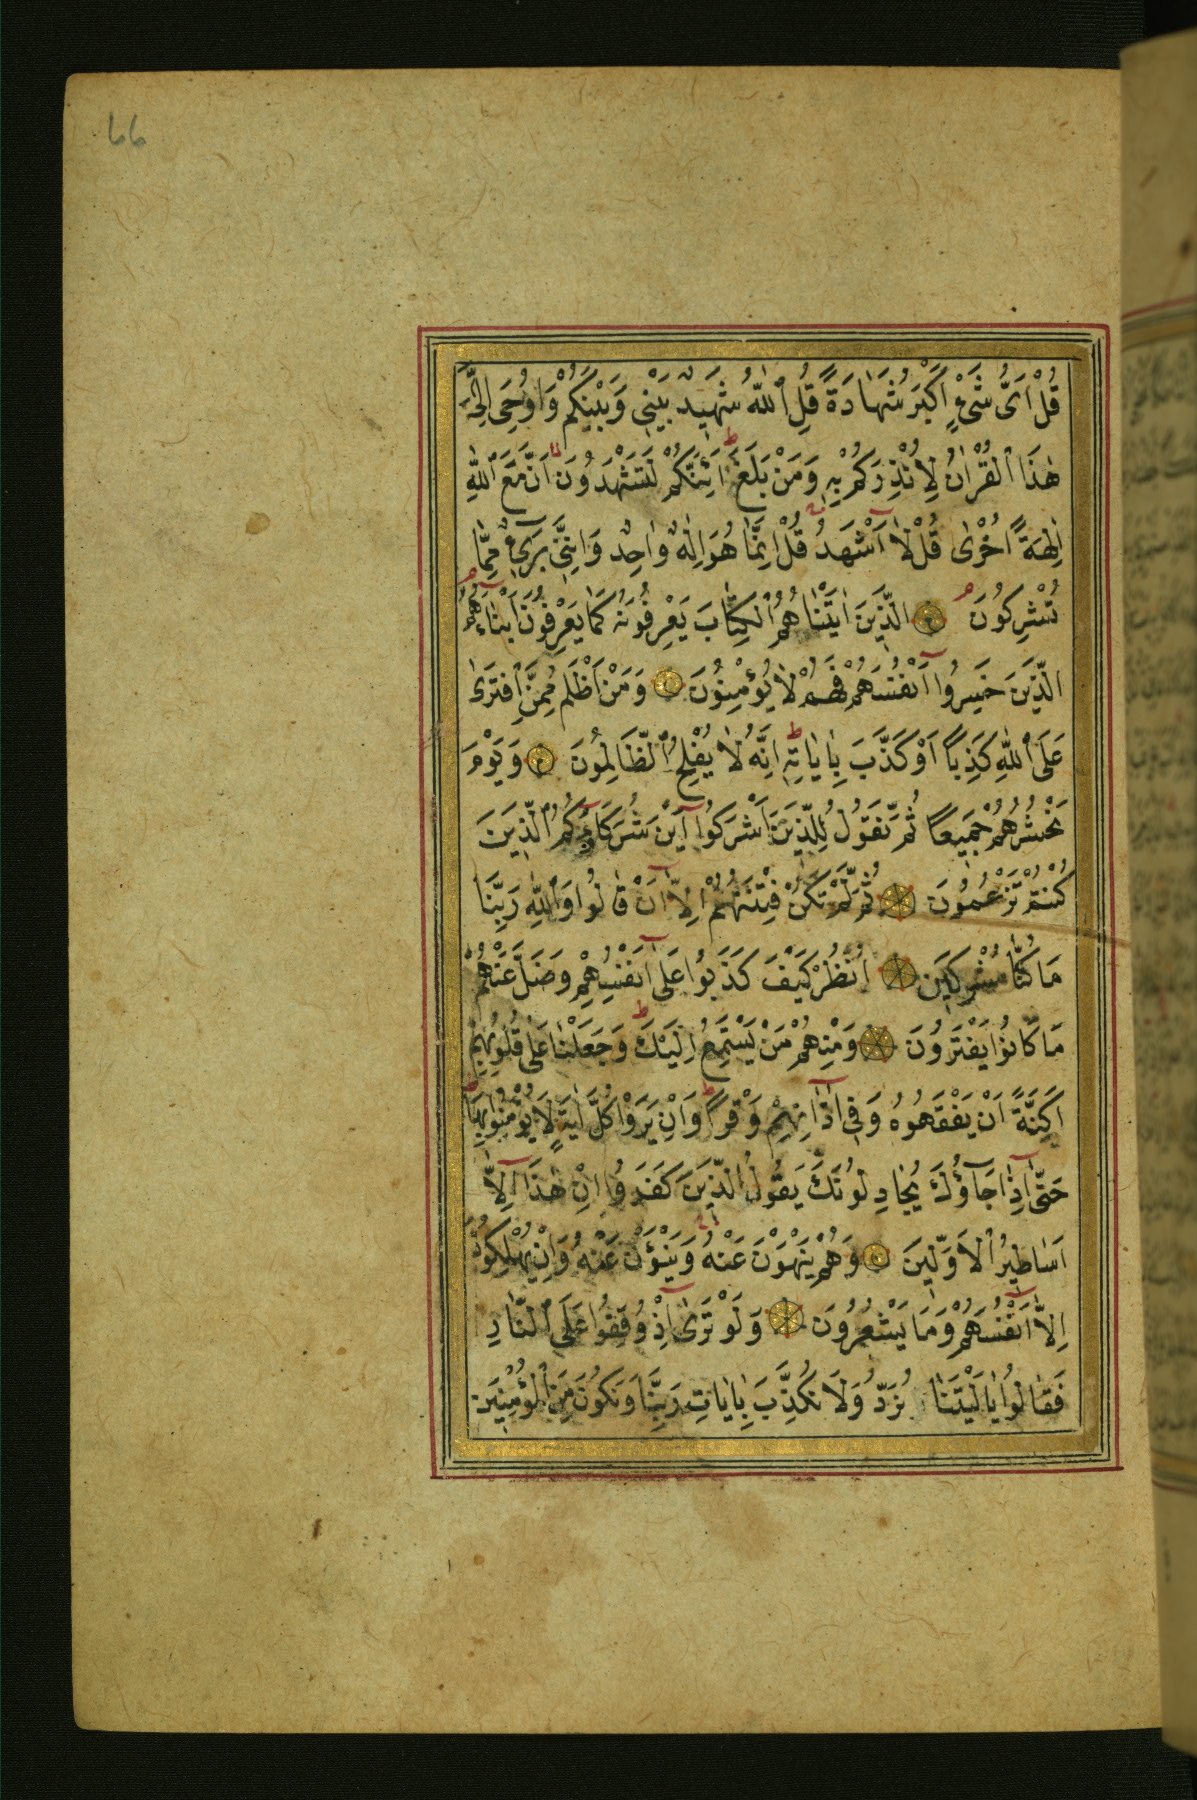 66
قُلْ اَىُّ شَىْءٍ اَكْبَرُ شَهَادَةً قُلِ ٱللّٰهُ شَهِيدٌ بَيْنِى وَبَيْنَكُمْ وَاُوحِىَ اِلَىَّ
هٰذَا ٱلْقُرْاٰنُ لِاُنْذِرَكُمْ بِهِ وَمَنْ بَلَغَ ط اَئِنَّكُمْ لَتَشْهَدُونَ اَنَّ مَعَ ٱللّٰهِ
اٰلِهَةً اُخْرٰى قُلْ لَٓا اَشْهَدُ قُلْ اِنَّمَا هُوَ اِلٰهٌ وَاحِدٌ وَاِنَّنِى بَرِىٓءٌ مِمَّا
تُشْرِكُونَ م الَّذِينَ اٰتَيْنَاهُمُ ٱلْكِتَابَ يَعْرِفُونَهُ كَمَا يَعْرِفُونَ اَبْنَٓاءَهُمْ م
الَّذِينَ خَسِرُٓوا اَنْفُسَهُمْ فَهُمْ لَا يُؤْمِنُونَ وَمَنْ اَظْلَمُ مِمَّنِ ٱفْتَرٰى
عَلَى ٱللّٰهِ كَذِبًا اَوْ كَذَّبَ بِاٰيَاتِهِ ط اِنَّهُ لَا يُفْلِحُ ٱلظَّالِمُونَ وَيَوْمَ
نَحْشُرُهُمْ جَمِيعًا ثُمَّ نَقُولُ لِلَّذِينَ اَشْرَكُٓوا اَيْنَ شُرَكَٓاؤُكُمُ ٱلَّذِينَ
كُنْتُمْ تَزْعُمُونَ ثُمَّ لَمْ تَكُنْ فِتْنَتُهُمْ اِلَّٓا اَنْ قَالُوا وَٱللّٰهِ رَبِّنَا
مَا كُنَّا مُشْرِكِينَ اُنْظُرْ كَيْفَ كَذَبُوا عَلَٓى اَنْفُسِهِمْ وَضَلَّ عَنْهُمْ
مَا كَانُوا يَفْتَرُونَ وَمِنْهُمْ مَنْ يَسْتَمِعُ اِلَيْكَ ط وَجَعَلْنَا عَلٰى قُلُوبِهِمْ
اَكِنَّةً اَنْ يَفْقَهُوهُ وَفِٓى اٰذَانِهِمْ وَقْرًا ط وَاِنْ يَرَوْا كُلَّ اٰيَةٍ لَا يُؤْمِنُوا بِهَا ط
حَتّٰٓى اِذَا جَٓاؤُكَ يُجَادِلُونَكَ يَقُولُ ٱلَّذِينَ كَفَرُٓوا اِنْ هٰذَٓا اِلَّٓا
اَسَاطِيرُ ٱلْاَوَّلِينَ وَهُمْ يَنْهَوْنَ عَنْهُ وَيَنْـَٔوْنَ عَنْهُ وَاِنْ يُهْلِكُونَ
اِلَّٓا اَنْفُسَهُمْ وَمَا يَشْعُرُونَ وَلَوْ تَرٰٓى اِذْ وُقِفُوا عَلَى ٱلنَّارِ
فَقَالُوا يَا لَيْتَنَا نُرَدُّ وَلَا نُكَذِّبَ بِاٰيَاتِ رَبِّنَا وَنَكُونَ مِنَ ٱلْمُؤْمِنِينَ